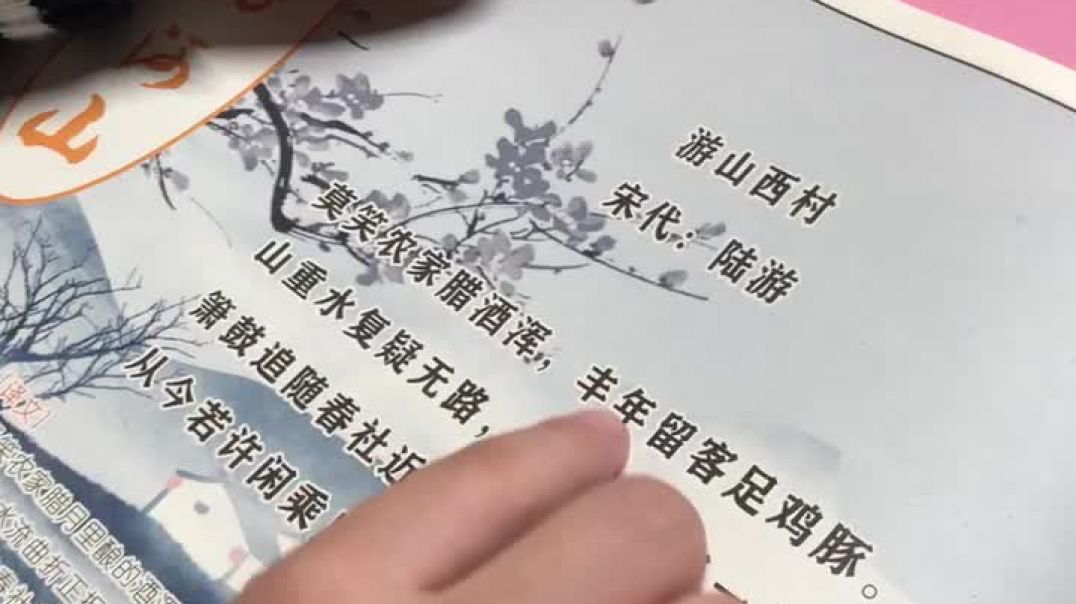 游山西村
宋代：陆游
莫笑农家腊酒浑，丰年留客足鸡豚。
山重水复疑无路，
箫鼓追随春社近
从今若许闲乘
【译文】
笑农家腊月里酿的酒
水流曲折正担